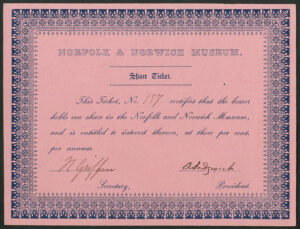 NORFOLK & NORWICH MUSEUM.
Share Ticket.
This Ticket, No. 187 certifies that the bearer
holds one share in the Norfolk and Norwich Museum,
and is entitled to interest thereon, at three per cent.
per annum.
A Sidgwick
Secretary, President.